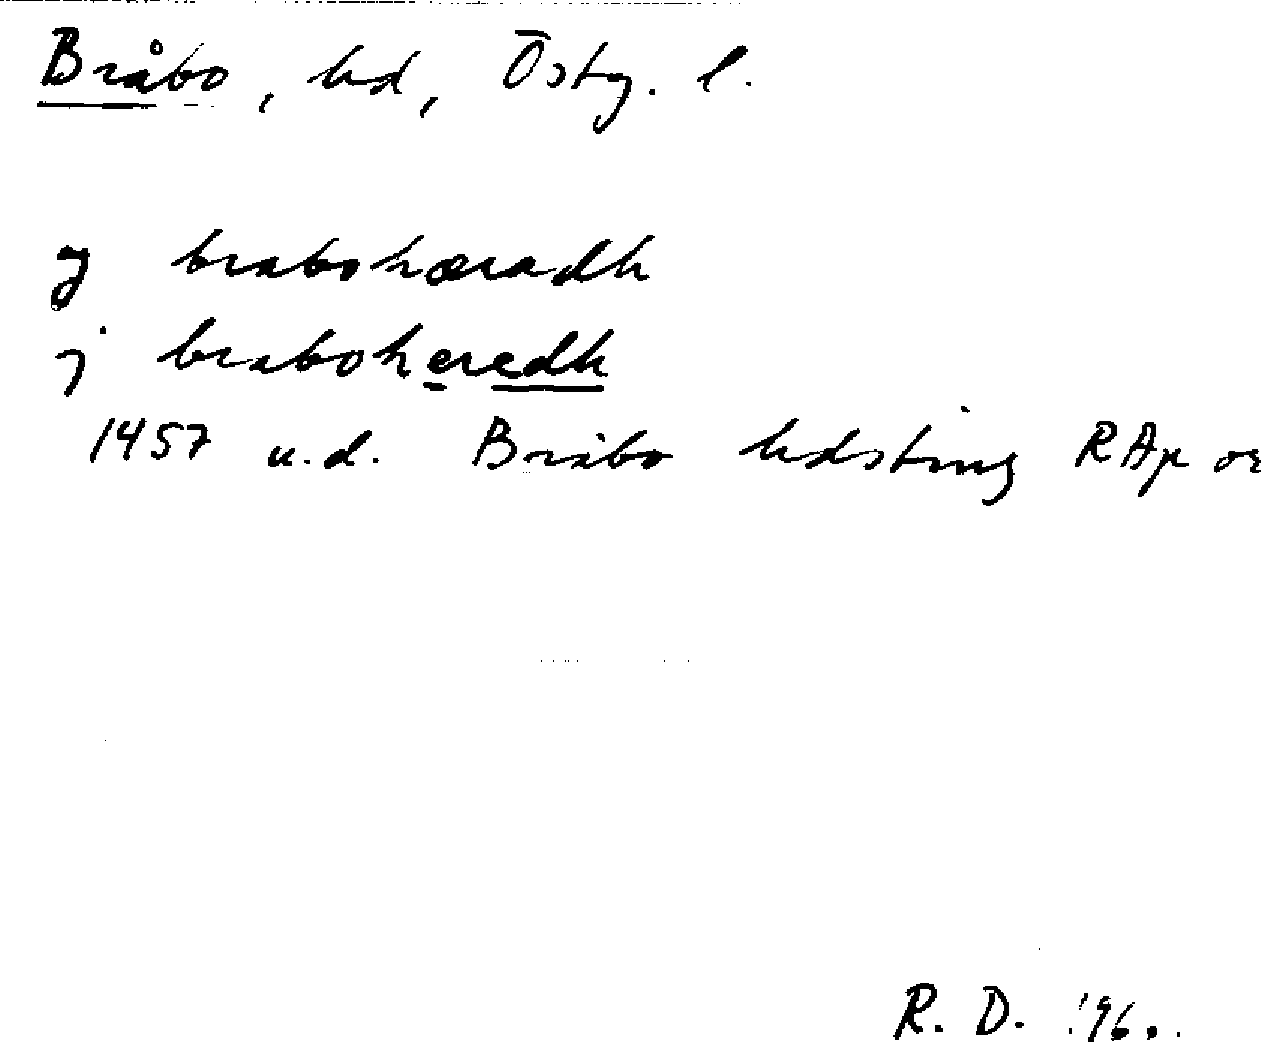 Bråbo, hd, Östg. l.
y brabohæradh
j braboheredh
1457 u.d. Bråbo hdsting RAp or
R. D. '96.